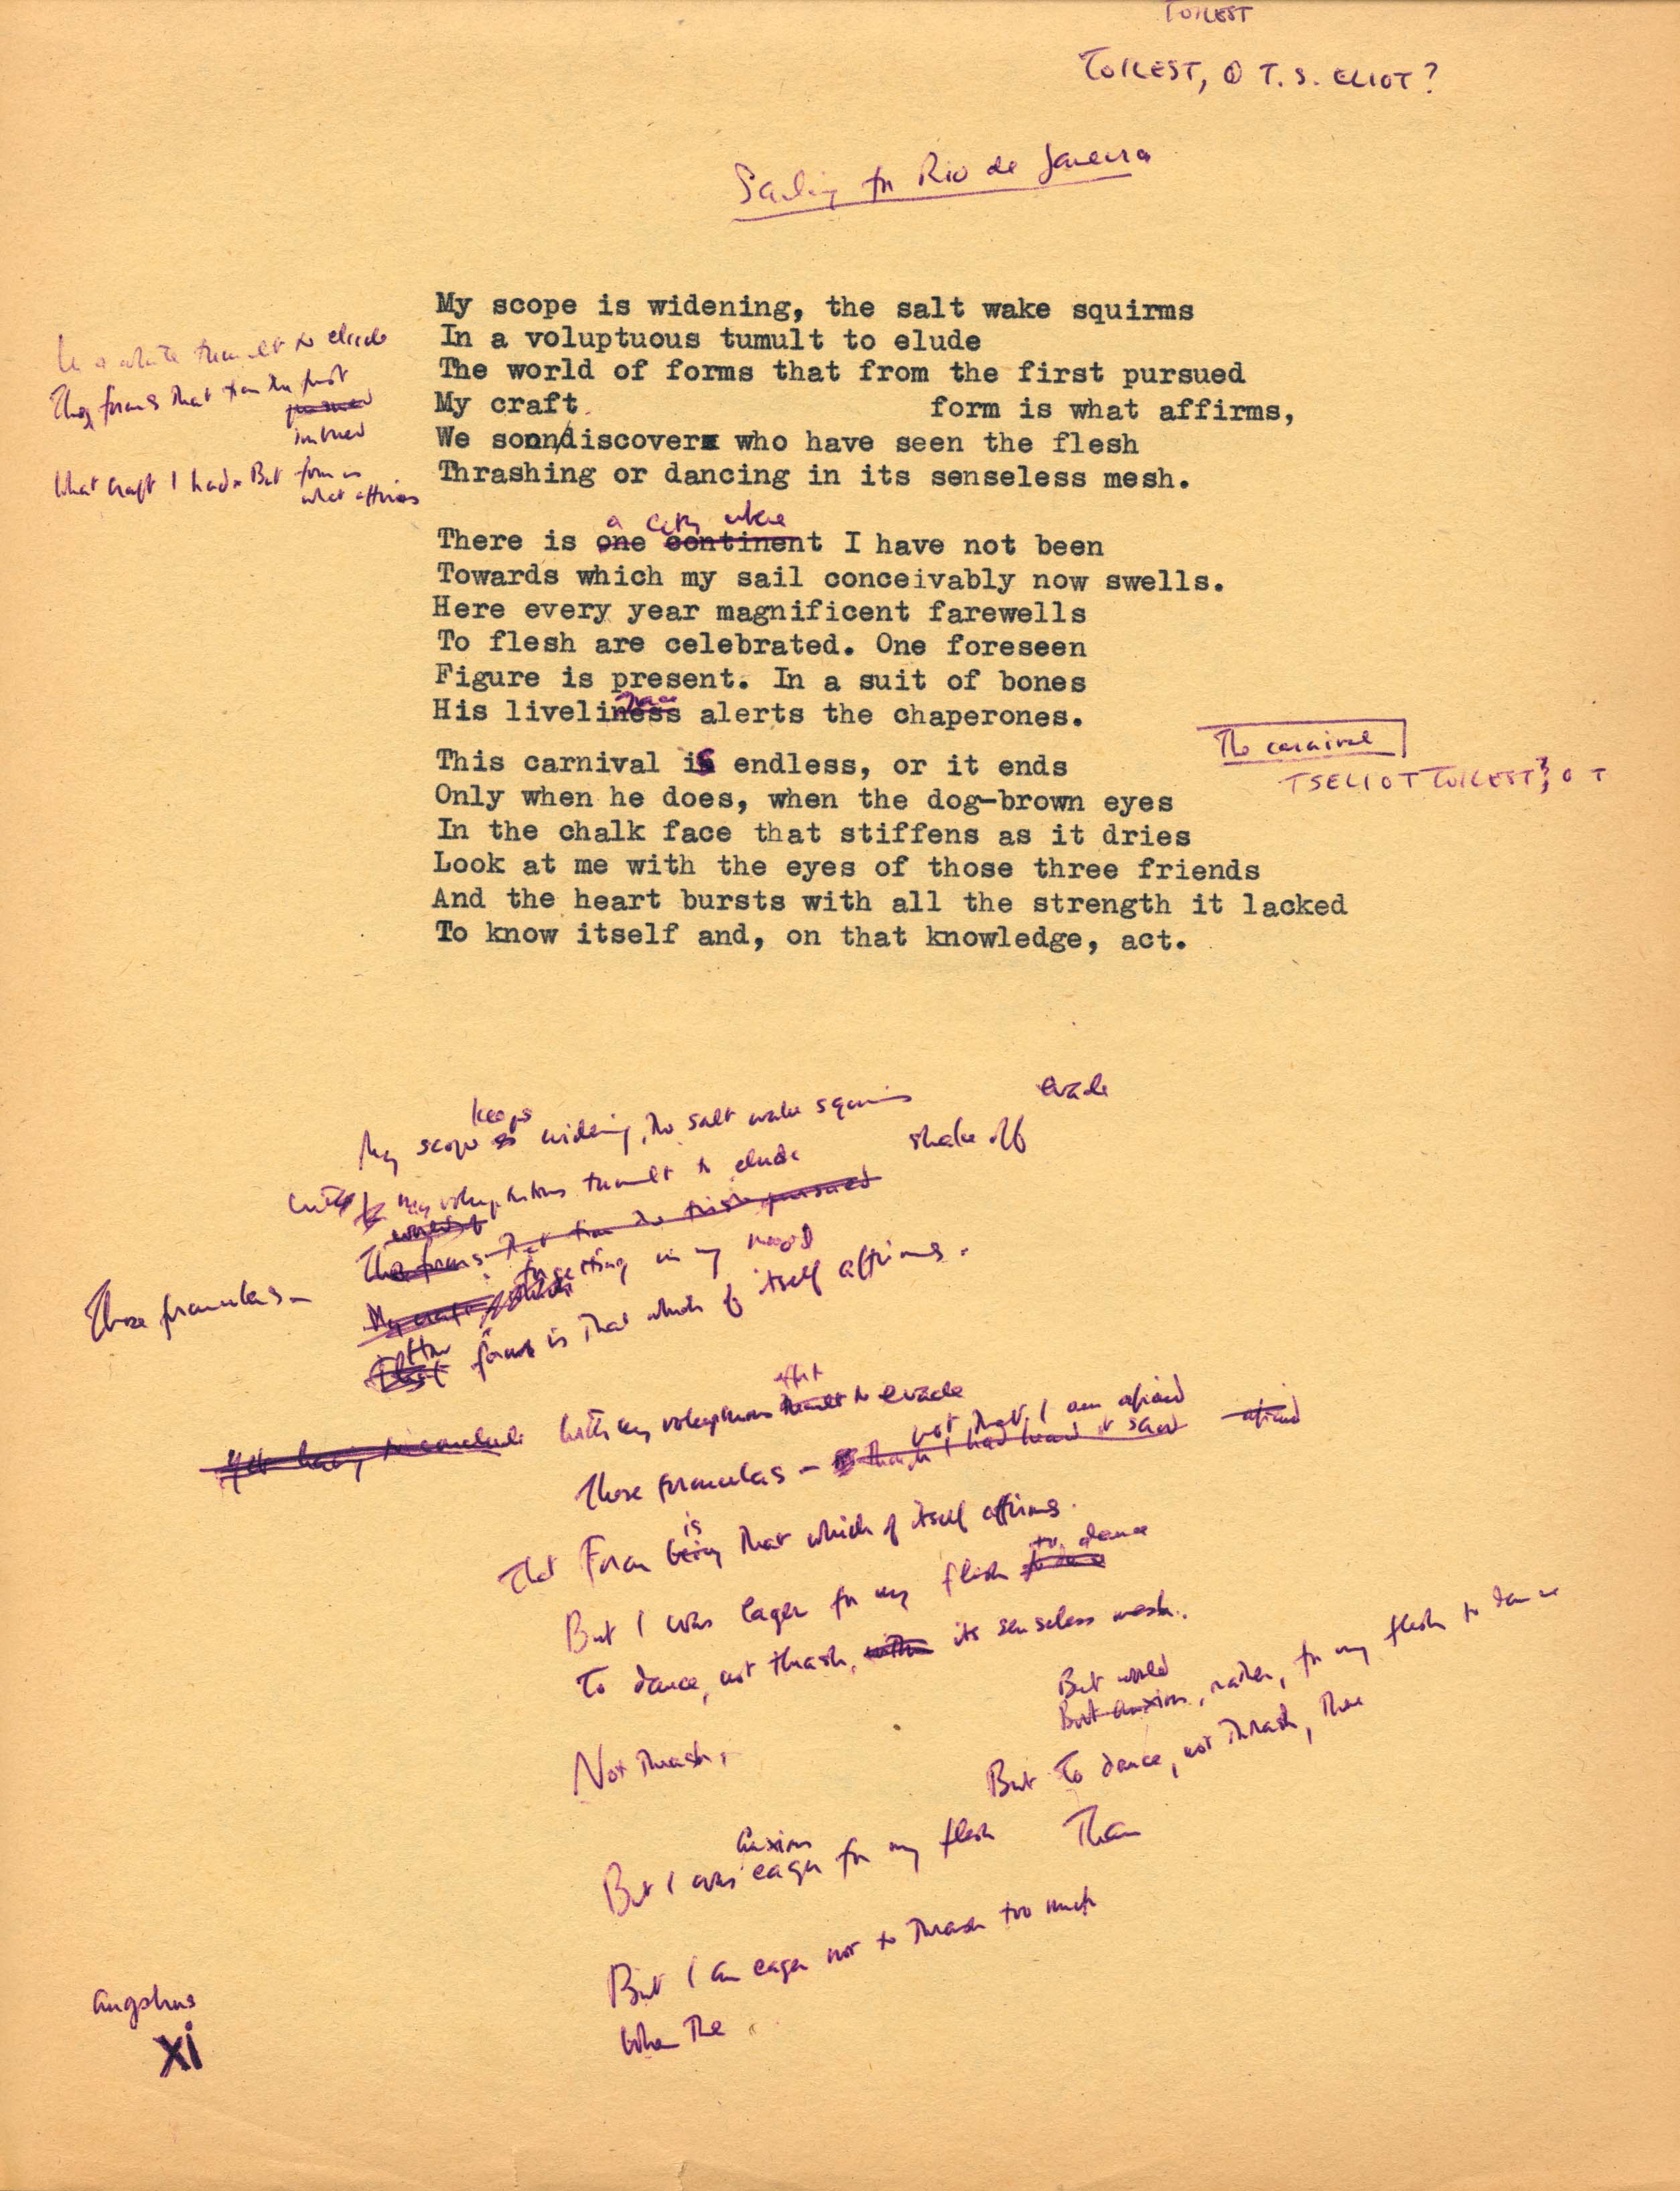 TOILEST
TOILEST, O T. S. ELIOT?
Sailing to Rio de Janeiro
My scope is widening, the salt wake squirms
In a voluptuous tumult to elude
The world of forms that from the first pursued
My craft. form is what affirms,
We soon/discover who have seen the flesh
Thrashing or dancing in its senseless mesh.
In a white tumult to elude
The forms that from the first
pursued
imbued
What craft I had. But form is
what affirms
a city where
There is one continent I have not been
Towards which my sail conceivably now swells.
Here every year magnificent farewells
To flesh are celebrated. One foreseen
Figure is present. In a suit of bones
His liveliness alerts the chaperones.
The carnival
TSELIOT TOILEST; O T
This carnival is endless, or it ends
Only when he does, when the dog-brown eyes
In the chalk face that stiffens as it dries
Look at me with the eyes of those three friends
And the heart bursts with all the strength it lacked
To know itself and, on that knowledge, act.
keeps evade
My scope is widening, the salt wake squirms
with my voluptuous tumult to elude shake off
The forms that from the first pursued
Those formulas— forgetting in my mood
My craft
How form is that which of itself affirms.
effort
With my voluptuous tumult to evade
not that I am afraid
Those formulas — though I had heard it said afraid
is
That Form being that which of itself affirms.
But I was eager for my flesh to dance
To dance, not thrash, within its senseless mesh.
But would
But anxious, rather, for my flesh to dance
Not thrash,
But To dance, not thrash, then
anxious
But I was eager for my flesh Than
But I am eager not to thrash too much
When The
Angshus
xi